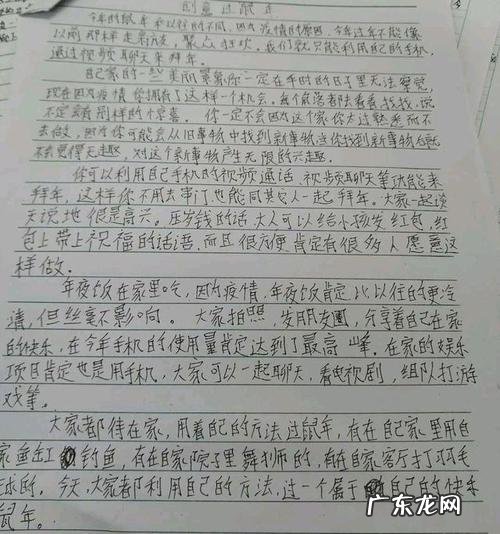 创意过鼠年
今年的鼠年和以往的不同，因为疫情的原因，今年过年不能像
以前那样走亲访友，聚众狂欢。我们就只能利用自己的手机
通过视频聊天来拜年。
自己家的一些美丽景象你一定在平时的日子里无法察觉，
现在因为疫情你拥有了这样一个机会。每个角落者陆看看找找，说
不定有别样的惊喜。你一定不会因为这个家你太过熟悉而不
去做，因为你可能会从旧事物中找到新事物当你找到新事物
不会觉得无趣，对这个新事物产生无限的兴趣。
你可以利用自己手机的视频通话、视频聊天等功能来
拜年，这样你不用去串门也能同其它人一起拜年。大家一起谈
天说地很是高兴。压岁钱的话大人可以给小孩发红包，红
包上带上祝福的话语，而且很方便肯定有很多人愿意这
样做。
年夜饭在家里吃，因为疫情，年夜饭肯定比以往的更冷
清，但丝毫不影响。大家拍照，发朋友圈，分享着自己在家
的快乐，在今年手机的使用量肯定达到了最高峰。在家的娱乐
项目肯定也是用手机，大家可以一起聊天，看电视剧，组队打游
戏等。
大家都待在家，用着自己的方法过鼠年，有在自己家里用自
家鱼缸钓鱼，有在家院子里舞狮的，有在家客厅打羽毛
球的。今天，大家都利用自己的方法，过一个属于自己的快乐
鼠年。
广东龙网